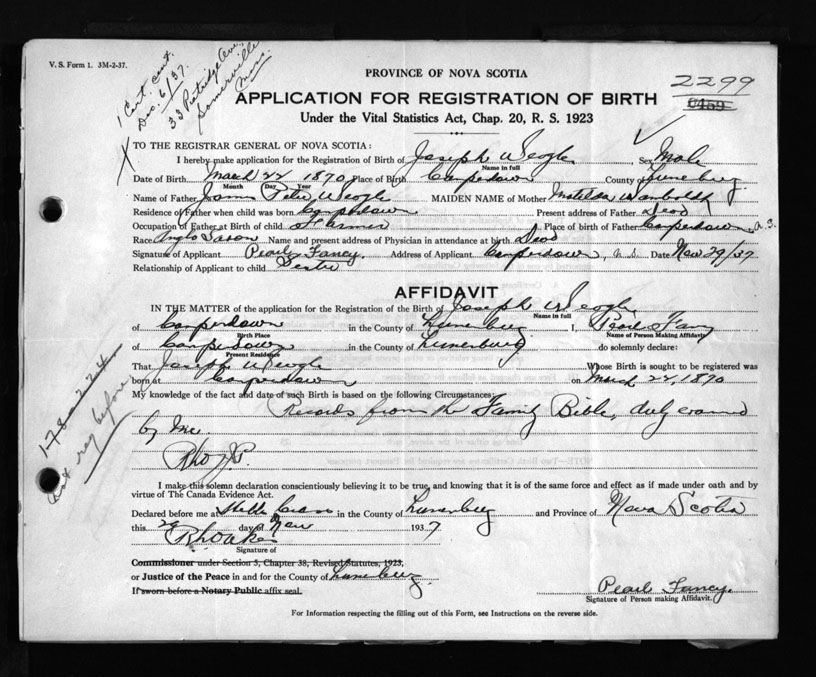 V. S. Form 1. 3M-2-37.
1 Cert. sent.
Dec. 6/37.
33 Partridge Ave.
Somerville
Mass.
PROVINCE OF NOVA SCOTIA
2299
APPLICATION FOR REGISTRATION OF BIRTH
Under the Vital Statistics Act, Chap. 20, R. S. 1923
TO THE REGISTRAR GENERAL OF NOVA SCOTIA:
I hereby make application for the Registration of Birth of Joseph Weagle, Sex Male
Name in full
Date of Birth March 22 1870 Place of Birth Camperdown County of Lunenburg
Month Day Year
Name of Father James Peter Weagle MAIDEN NAME of Mother Matilda Wamboldt
Residence of Father when child was born Camperdown Present address of Father Dead
Occupation of Father at Birth of child Farmer Place of birth of Father Camperdown, N.S.
Race Anglo Saxon Name and present address of Physician in attendance at birth Dead
Signature of Applicant Pearl Fancy. Address of Applicant Camperdown, N.S. Date Nov 29/37
Relationship of Applicant to child
AFFIDAVIT
IN THE MATTER of the application for the Registration of the Birth of Joseph Weagle
Name in full
of Camperdown in the County of Lunenburg I, Pearl Fancy
Birth Place Name of Person Making Affidavit
of Camperdown in the County of Lunenburg do solemnly declare:
Present Residence
That Joseph Weagle Whose Birth is sought to be registered was
born at Camperdown on March 22, 1870
My knowledge of the fact and date of such Birth is based on the following Circumstances:
Records from the Family Bible, duly examined
by me
J.P.
178-224
not reg before
I make this solemn declaration conscientiously believing it to be true, and knowing that it is of the same force and effect as if made under oath and by
virtue of The Canada Evidence Act.
Declared before me at in the County of Lunenburg and Province of Nova Scotia
this 29 day of Nov 1937
Signature of
Commissioner under Section 5, Chapter 38, Revised Statutes, 1923,
or Justice of the Peace in and for the County of Lunenburg.
If sworn before a Notary Public affix seal.
Pearl Fancy.
Signature of Person making Affidavit.
For Information respecting the filling out of this Form, see Instructions on the reverse side.